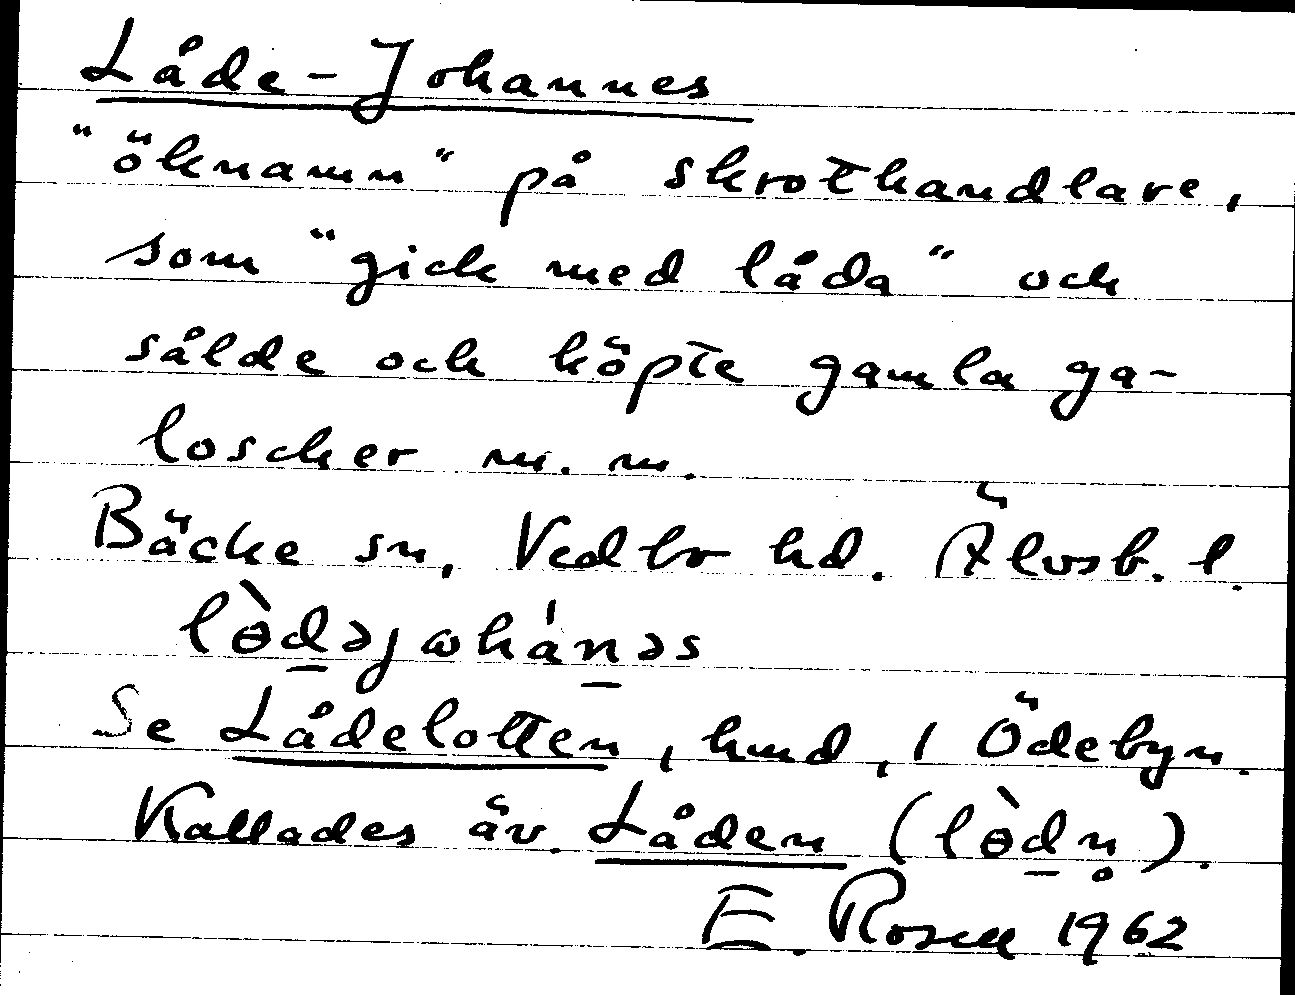 Låde-Johannes
"öknamn" på skrothandlare,
som "gick med låda" och
sålde och köpte gamla ga-
loscher m. m.
Bäcke sn, Vedbo hd. Älvsb. l.
lɵ̀d̲əjωhán̲əs
Se Lådelotten, hmd, 1 Ödebyn.
Kallades äv. Låden (lɵ̀d̲n̥).
E. Rosell 1962